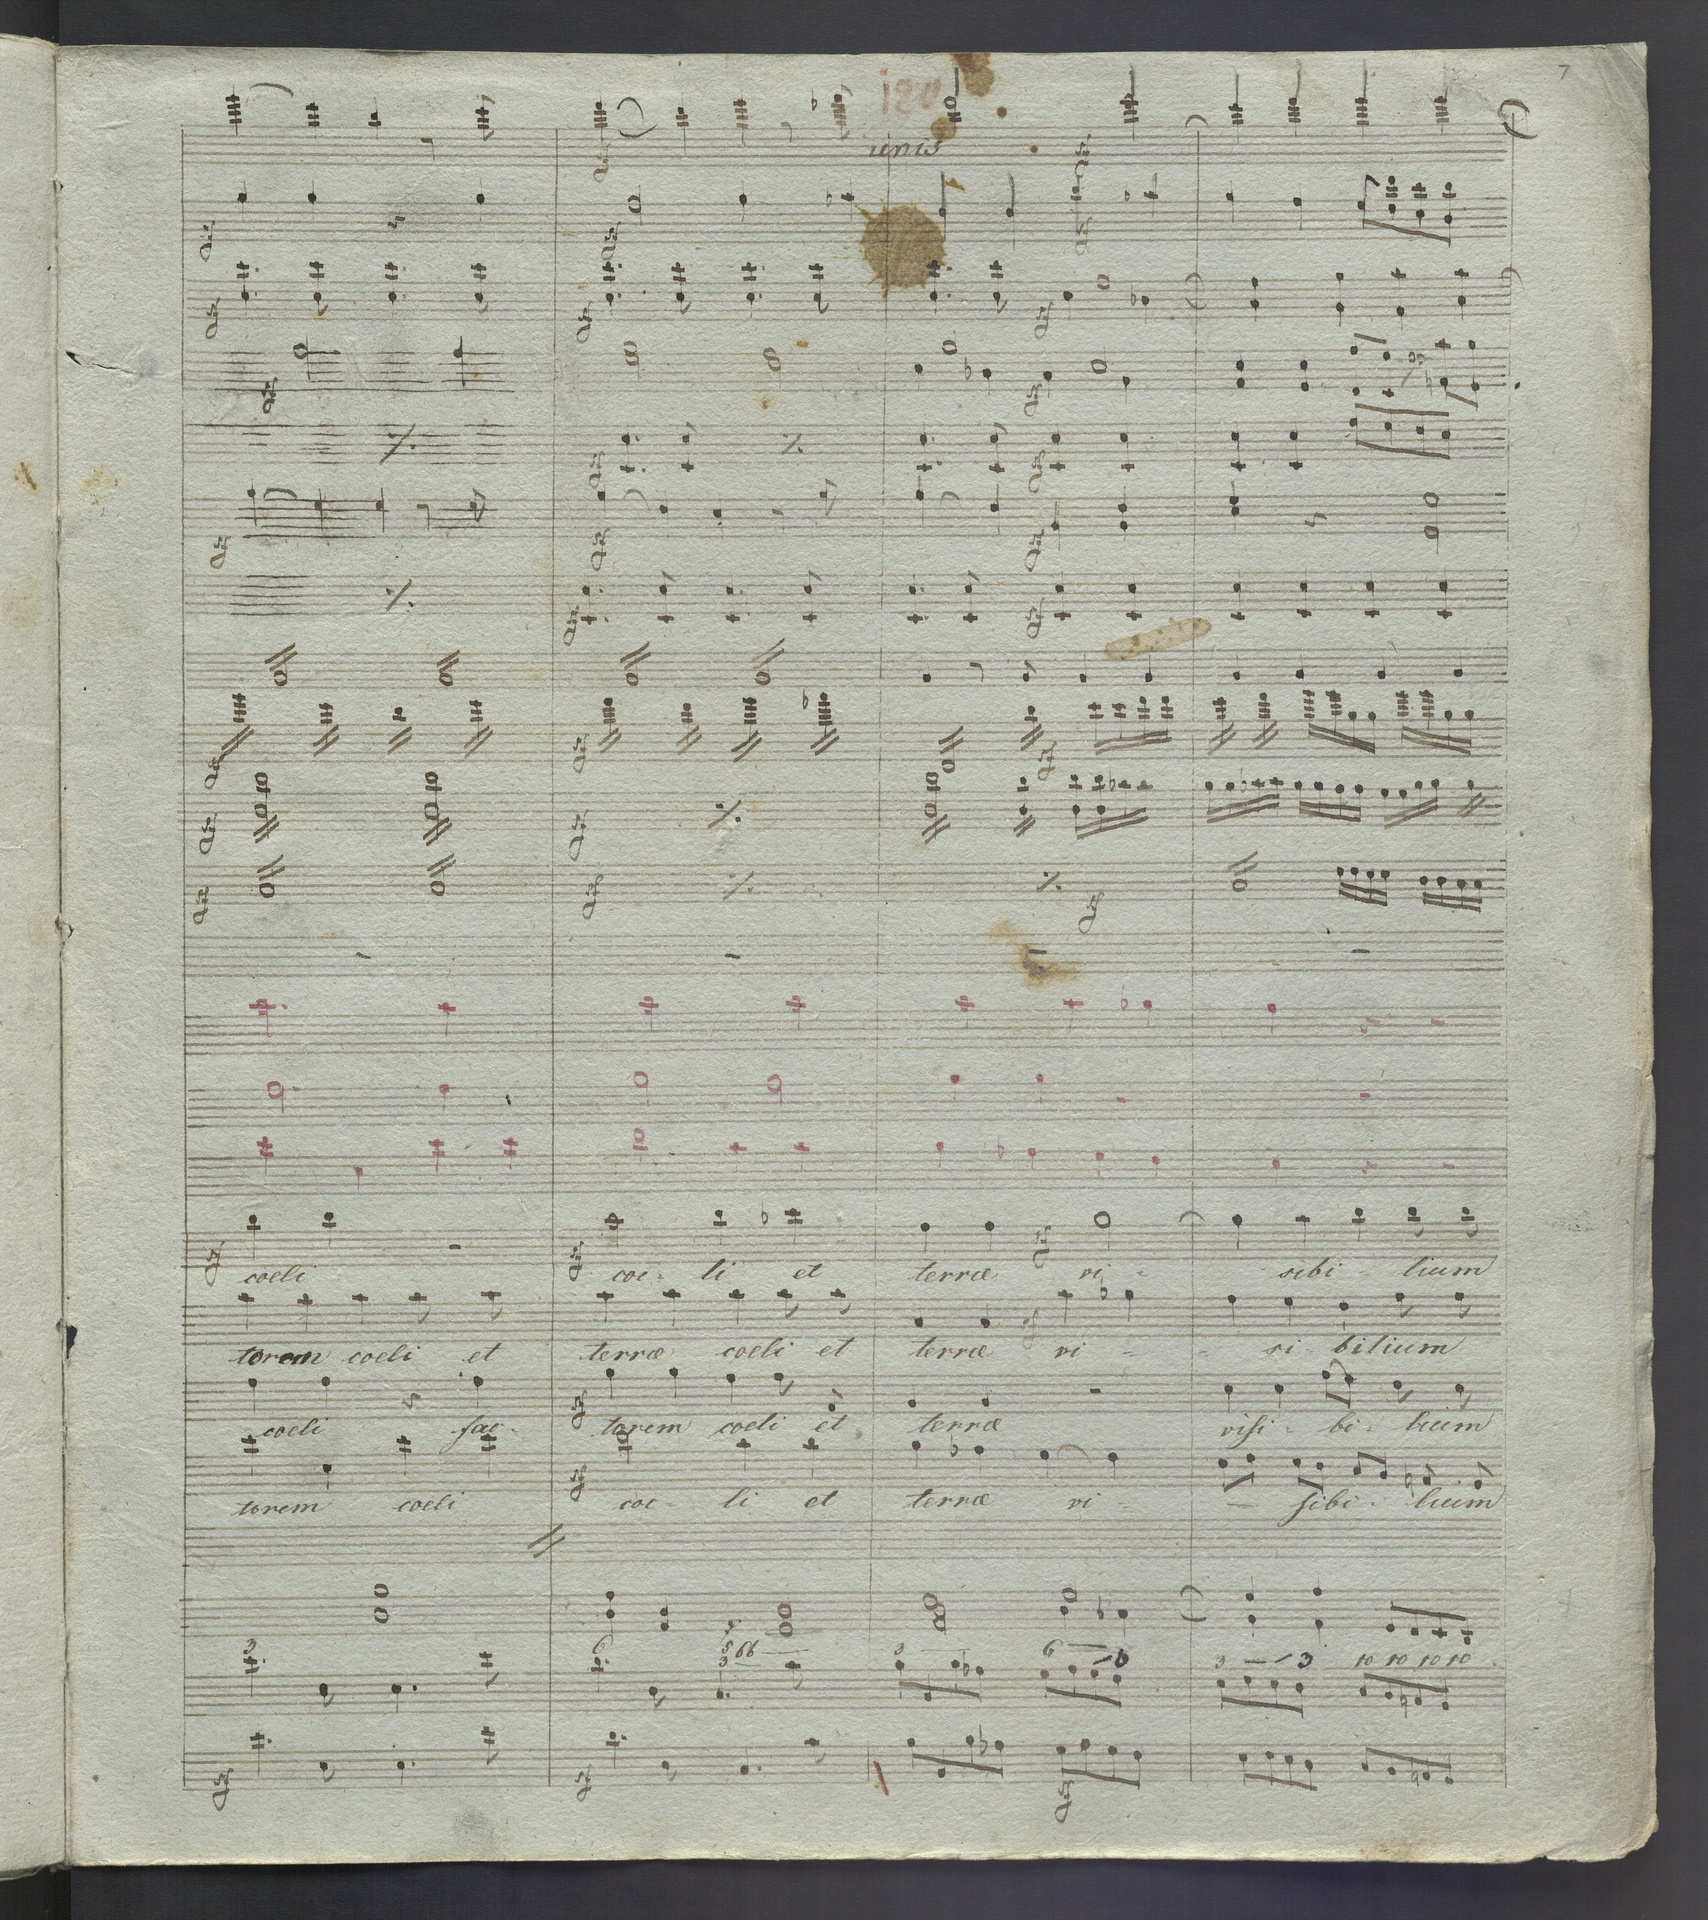 7
120
unis
coeli coe - li et terræ vi - sibi - lium
torem coeli et terræ coeli et terræ vi - - si - bilium
coeli fac - torem coeli et terræ visi - bi - lium
torem coeli coe - li et terræ vi - - sibi - lium
3 6 5 6b 3 6 6 3 3 10 10 10 10
3